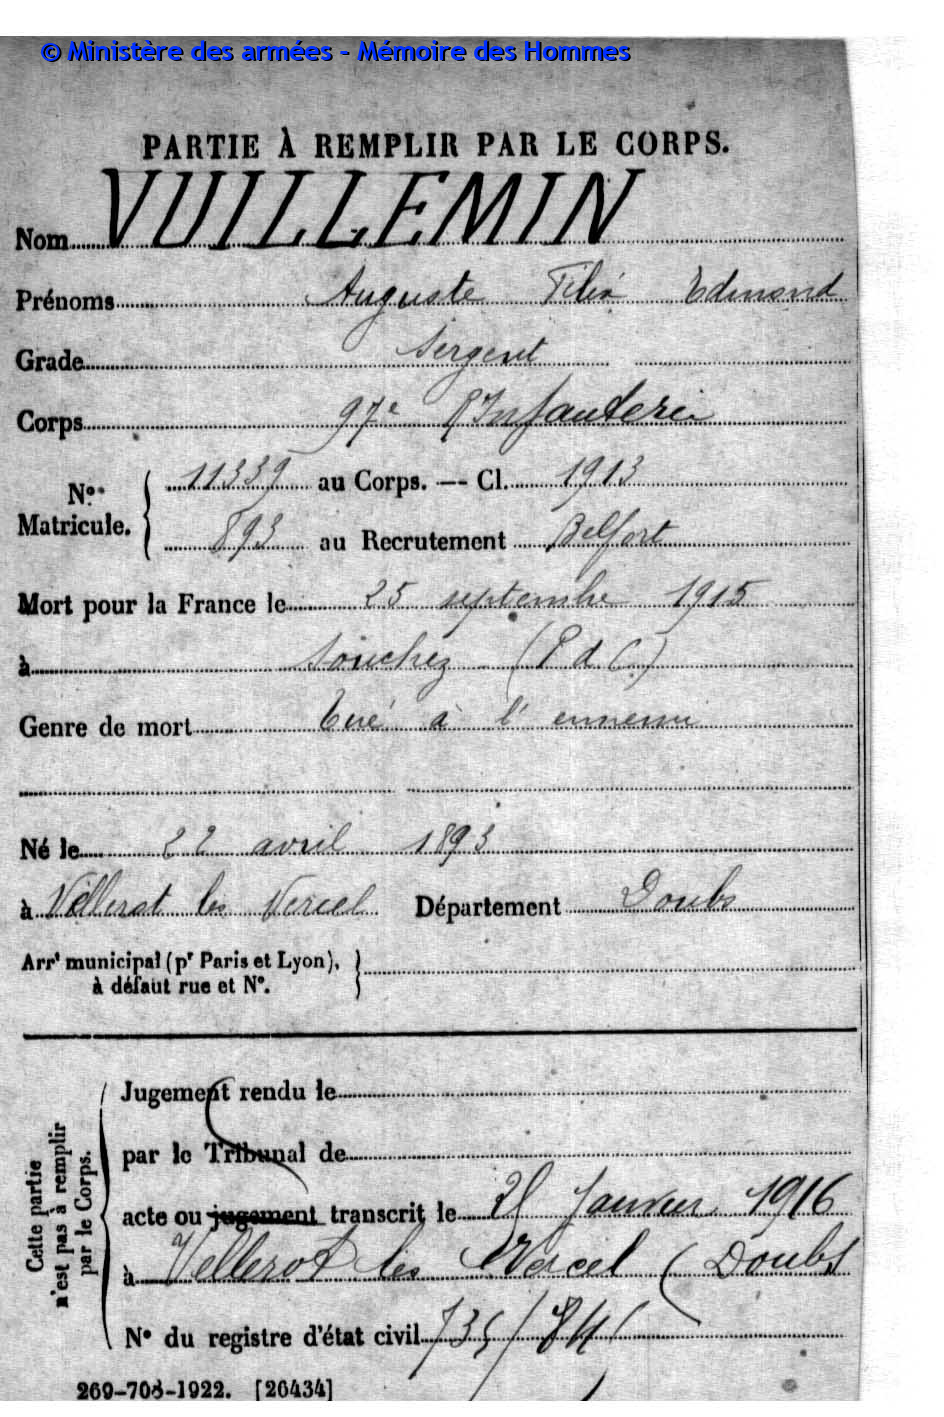 © Ministère des armées - Mémoire des Hommes
PARTIE À REMPLIR PAR LE CORPS.
Nom VUILLEMIN
Prénoms Auguste Félix Edmond
Grade Sergent
Corps 97e R Infanterie
Nos Matricule. 11339 au Corps. — Cl. 1913
893 au Recrutement Belfort
Mort pour la France le 25 septembre 1915
à Souchez (P d C)
Genre de mort Tué à l'ennemi
Né le 22 avril 1893
à Vellerot les Vercel Département Doubs
Arrt municipal (pr Paris et Lyon),
à défaut rue et N°.
Cette partie
n'est pas à remplir
par le Corps.
Jugement rendu le
par le Tribunal de
acte ou jugement transcrit le Janvier 1916
à Vellerot les Vercel (Doubs
N° du registre d'état civil
269-708-1922. [26434]